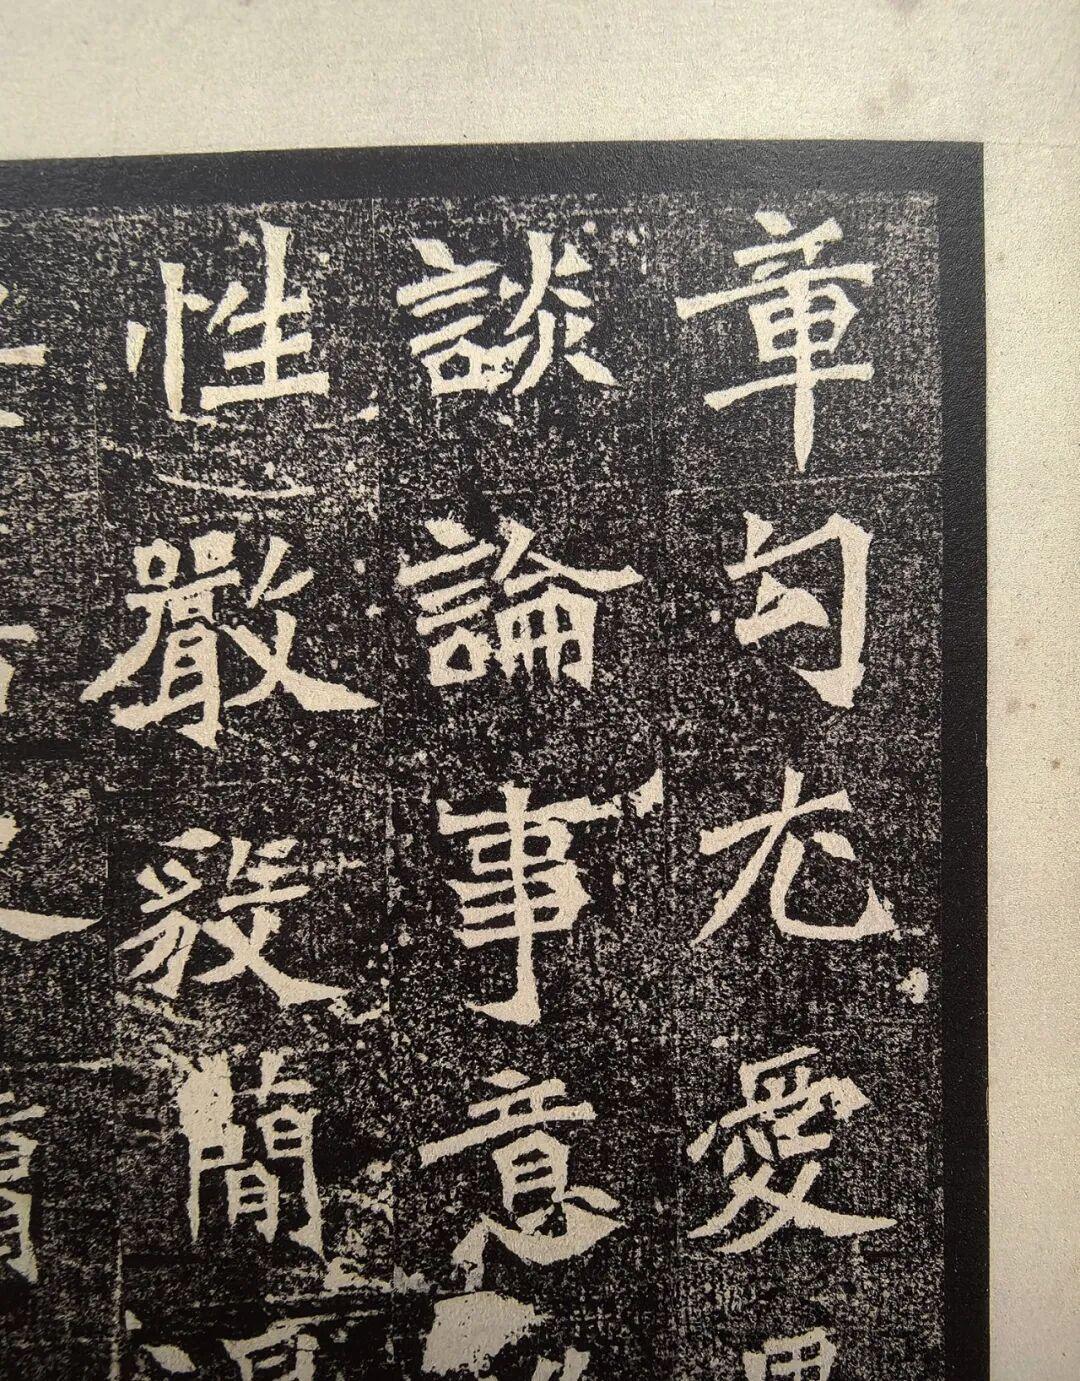 章句尤愛
談論事意
性嚴毅閒